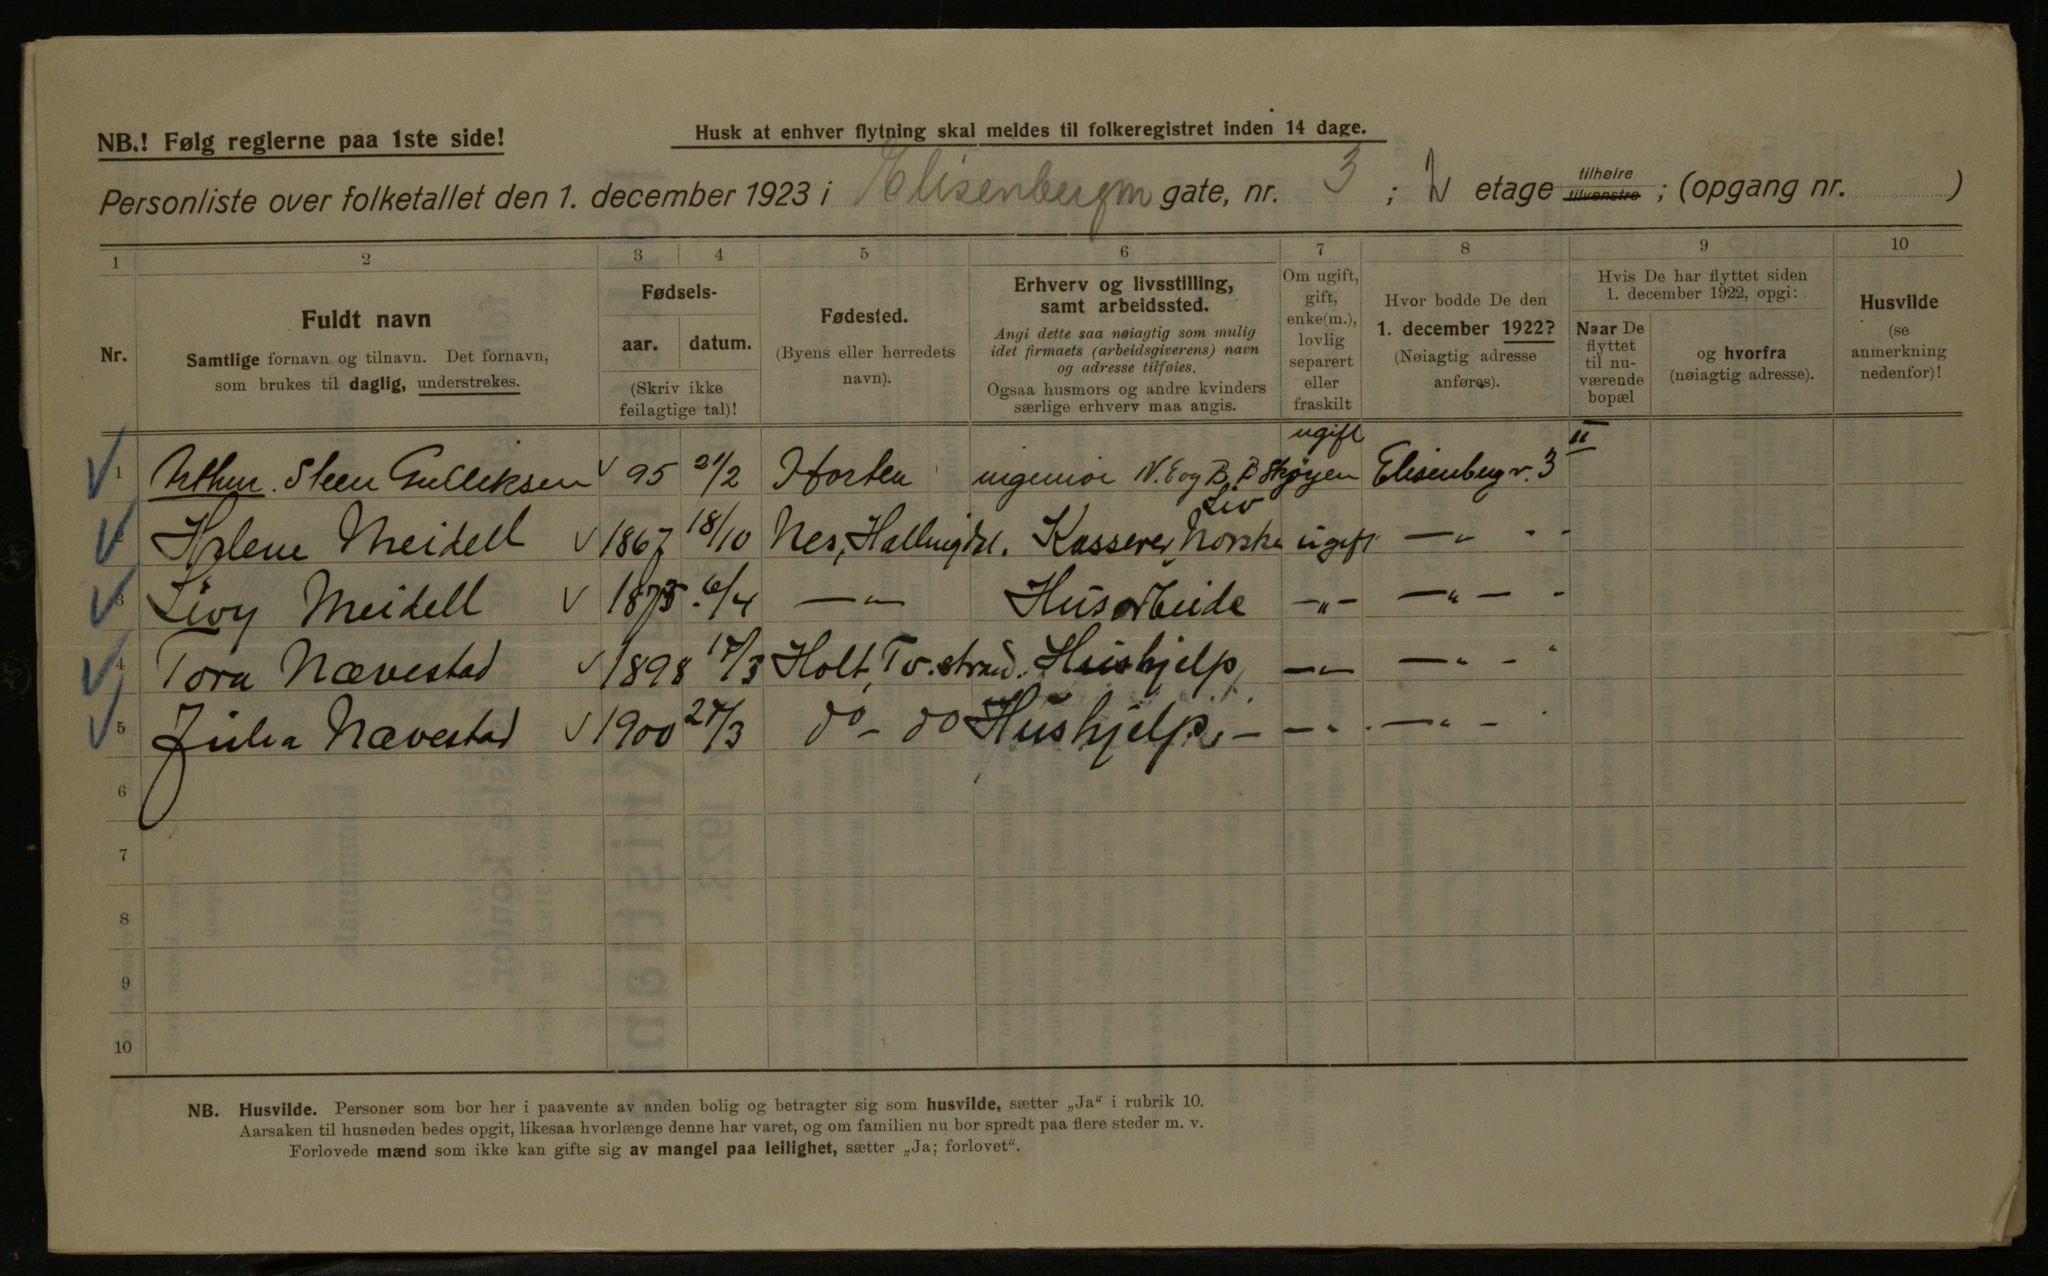 NB.! Følg reglerne paa 1ste side!
Husk at enhver flytning skal meldes til folkeregistret inden 14 dage.
Personliste over folketallet den 1. december 1923 i Elisenbergvn gate, nr. 3 ; 2 etage tilhøire tilvenstre ; (opgang nr. )
1 2 3 4 5 6 7 8 9 10
Nr.
Fuldt navn
Samtlige fornavn og tilnavn. Det fornavn,
som brukes til daglig, understrekes.
Fødsels-
aar. datum.
(Skriv ikke
feilagtige tal)!
Fødested.
(Byens eller herredets
navn).
Erhverv og livsstilling,
samt arbeidssted.
Angi dette saa nøiagtig som mulig
idet firmaets (arbeidsgiverens) navn
og adresse tilføies.
Ogsaa husmors og andre kvinders
særlige erhverv maa angis.
Om ugift,
gift,
enke(m.),
lovlig
separert
eller
fraskilt
Hvor bodde De den
1. december 1922?
(Nøiagtig adresse
anføres).
Hvis De har flyttet siden
1. december 1922, opgi:
Naar De
flyttet
til nu-
værende
bopæl
og hvorfra
(nøiagtig adresse).
Husvilde
(se
anmerkning
nedenfor)!
1 Arthur Steen Gulliksen √ 95 21/2 Horten ingeniør N.E og B.B Skøyen ugift Elisenberg v. 3 II
2 Helene Meidell √ 1867 18/10 Nes, Hallingdal. Kasserer, Norske Liv ugift —„ - -
3 Livy Meidell √ 1875 6/4 —„— Husarbeide -„- —„— -
4 Tora Nævestad √ 1898 17/3 Holt, Tv.strand. Hushjelp —„— —„ - -
5 Julia Nævestad √ 1900 27/3 do - do Hushjelp, — -„ - —„ - -
6
7
8
9
10
NB. Husvilde. Personer som bor her i paavente av anden bolig og betragter sig som husvilde, sætter „Ja“ i rubrik 10.
Aarsaken til husnøden bedes opgit, likesaa hvorlænge denne har varet, og om familien nu bor spredt paa flere steder m. v.
Forlovede mænd som ikke kan gifte sig av mangel paa leilighet, sætter „Ja; forlovet“.